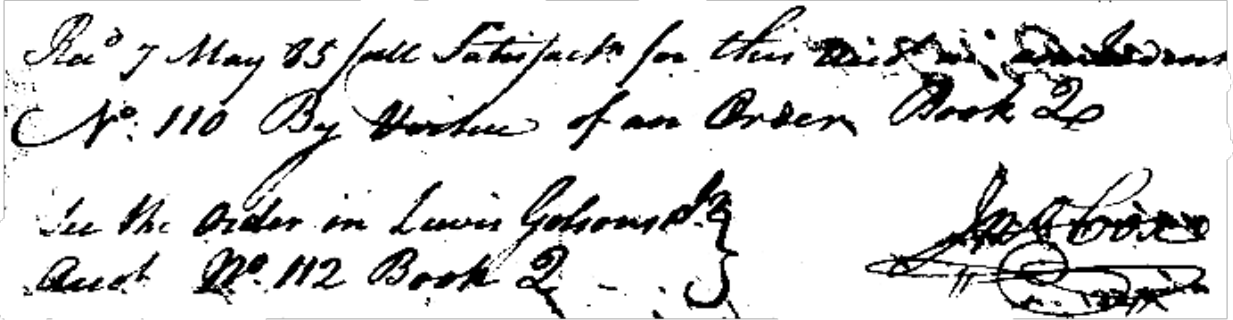 Recd 7 May 85 full Satisfactn for this Acct
No. 110 By Virtue of an Order Book 2
See the Order in Lewis Golsons
Acct No. 112 Book 2
Jno